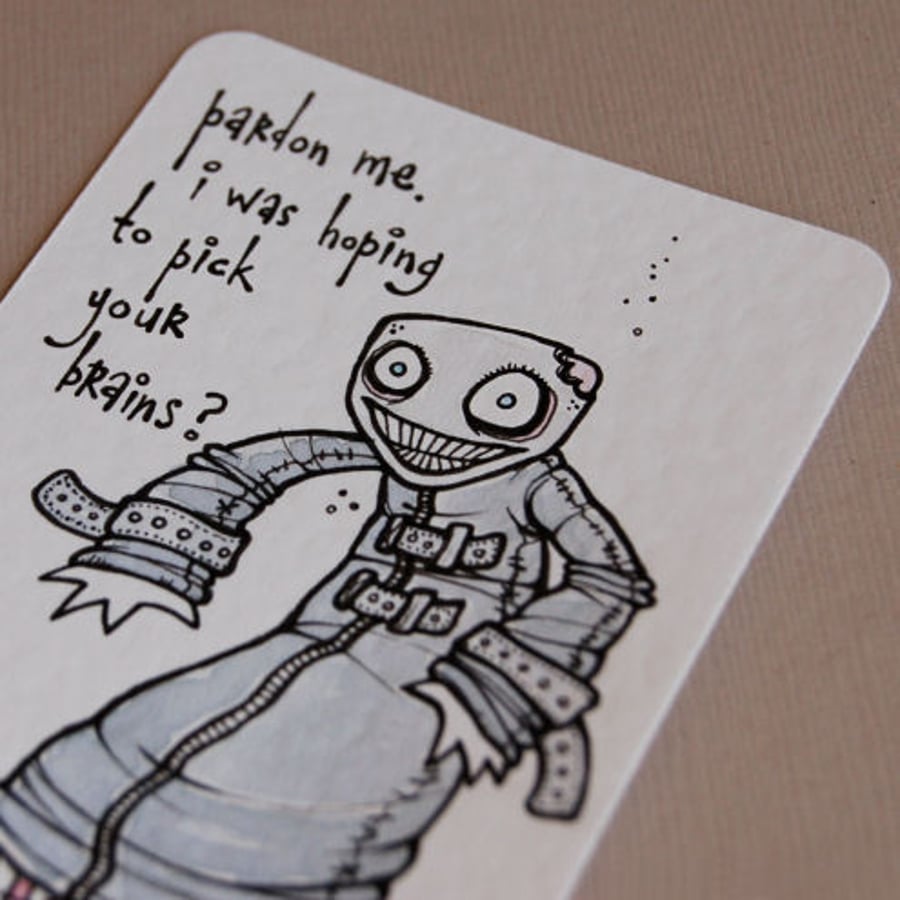 pardon me.
i was hoping
to pick
your
brains?